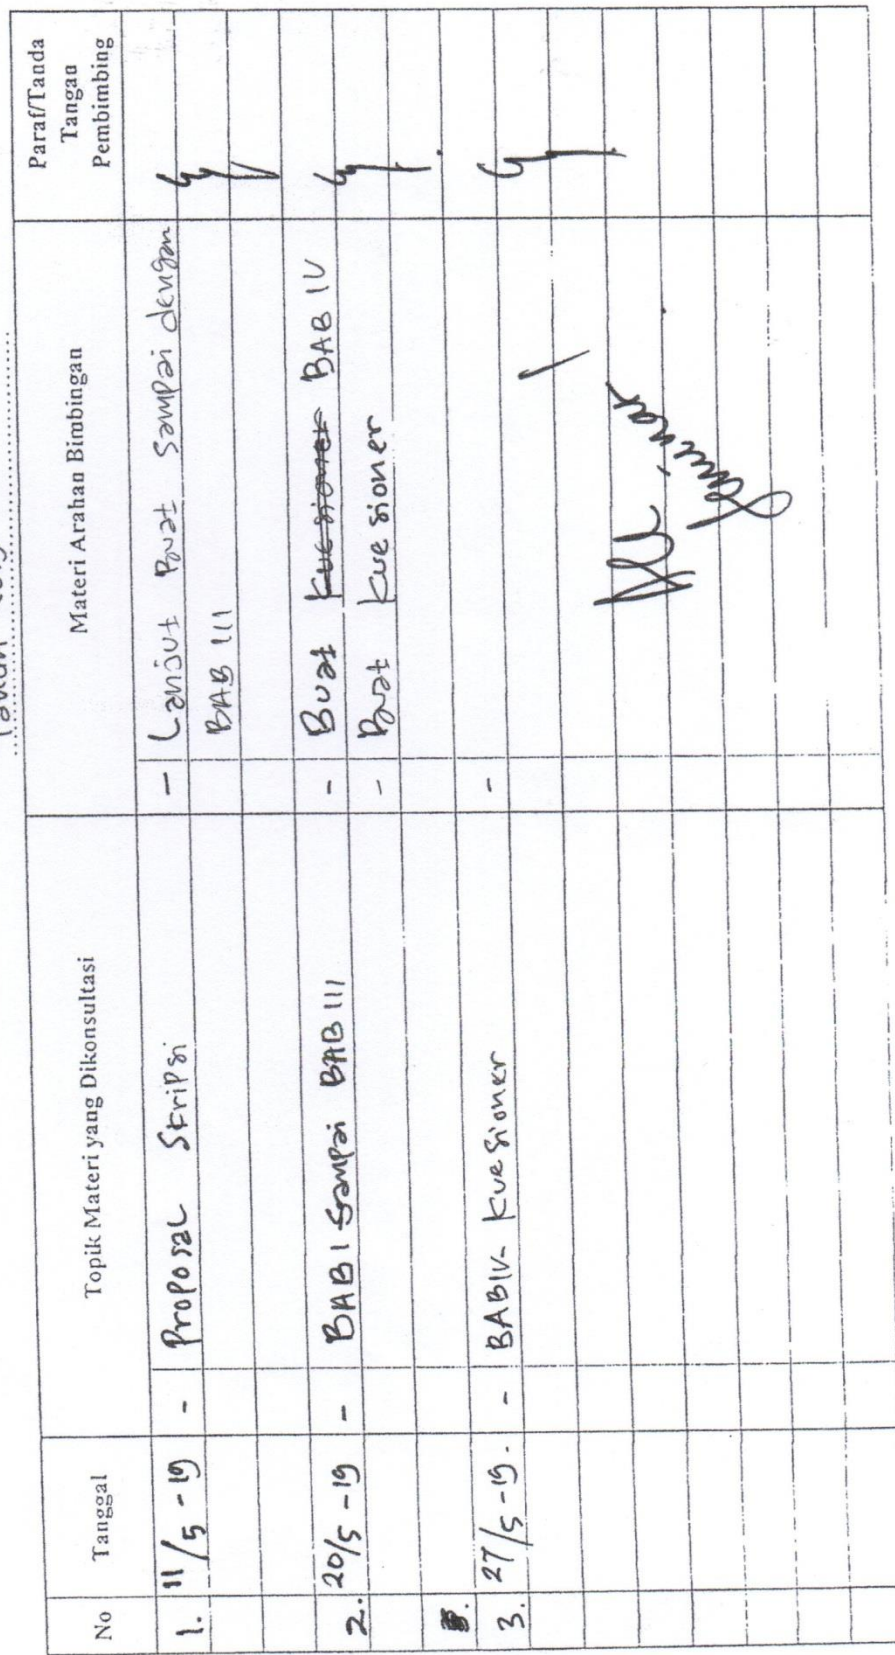 Tahun 2019
No
Tanggal
Topik Materi yang Dikonsultasi
Materi Arahan Bimbingan
Paraf/Tanda
Tangan
Pembimbing
1. 11/5 - 19 - Proposal Skripsi - Lanjut Buat sampai dengan
BAB III
2. 20/5 - 19 - BAB I Sampai BAB III - Buat Kuesioner BAB IV
- Buat Kuesioner
3. 27/5 - 19. - BAB IV - Kuesioner -